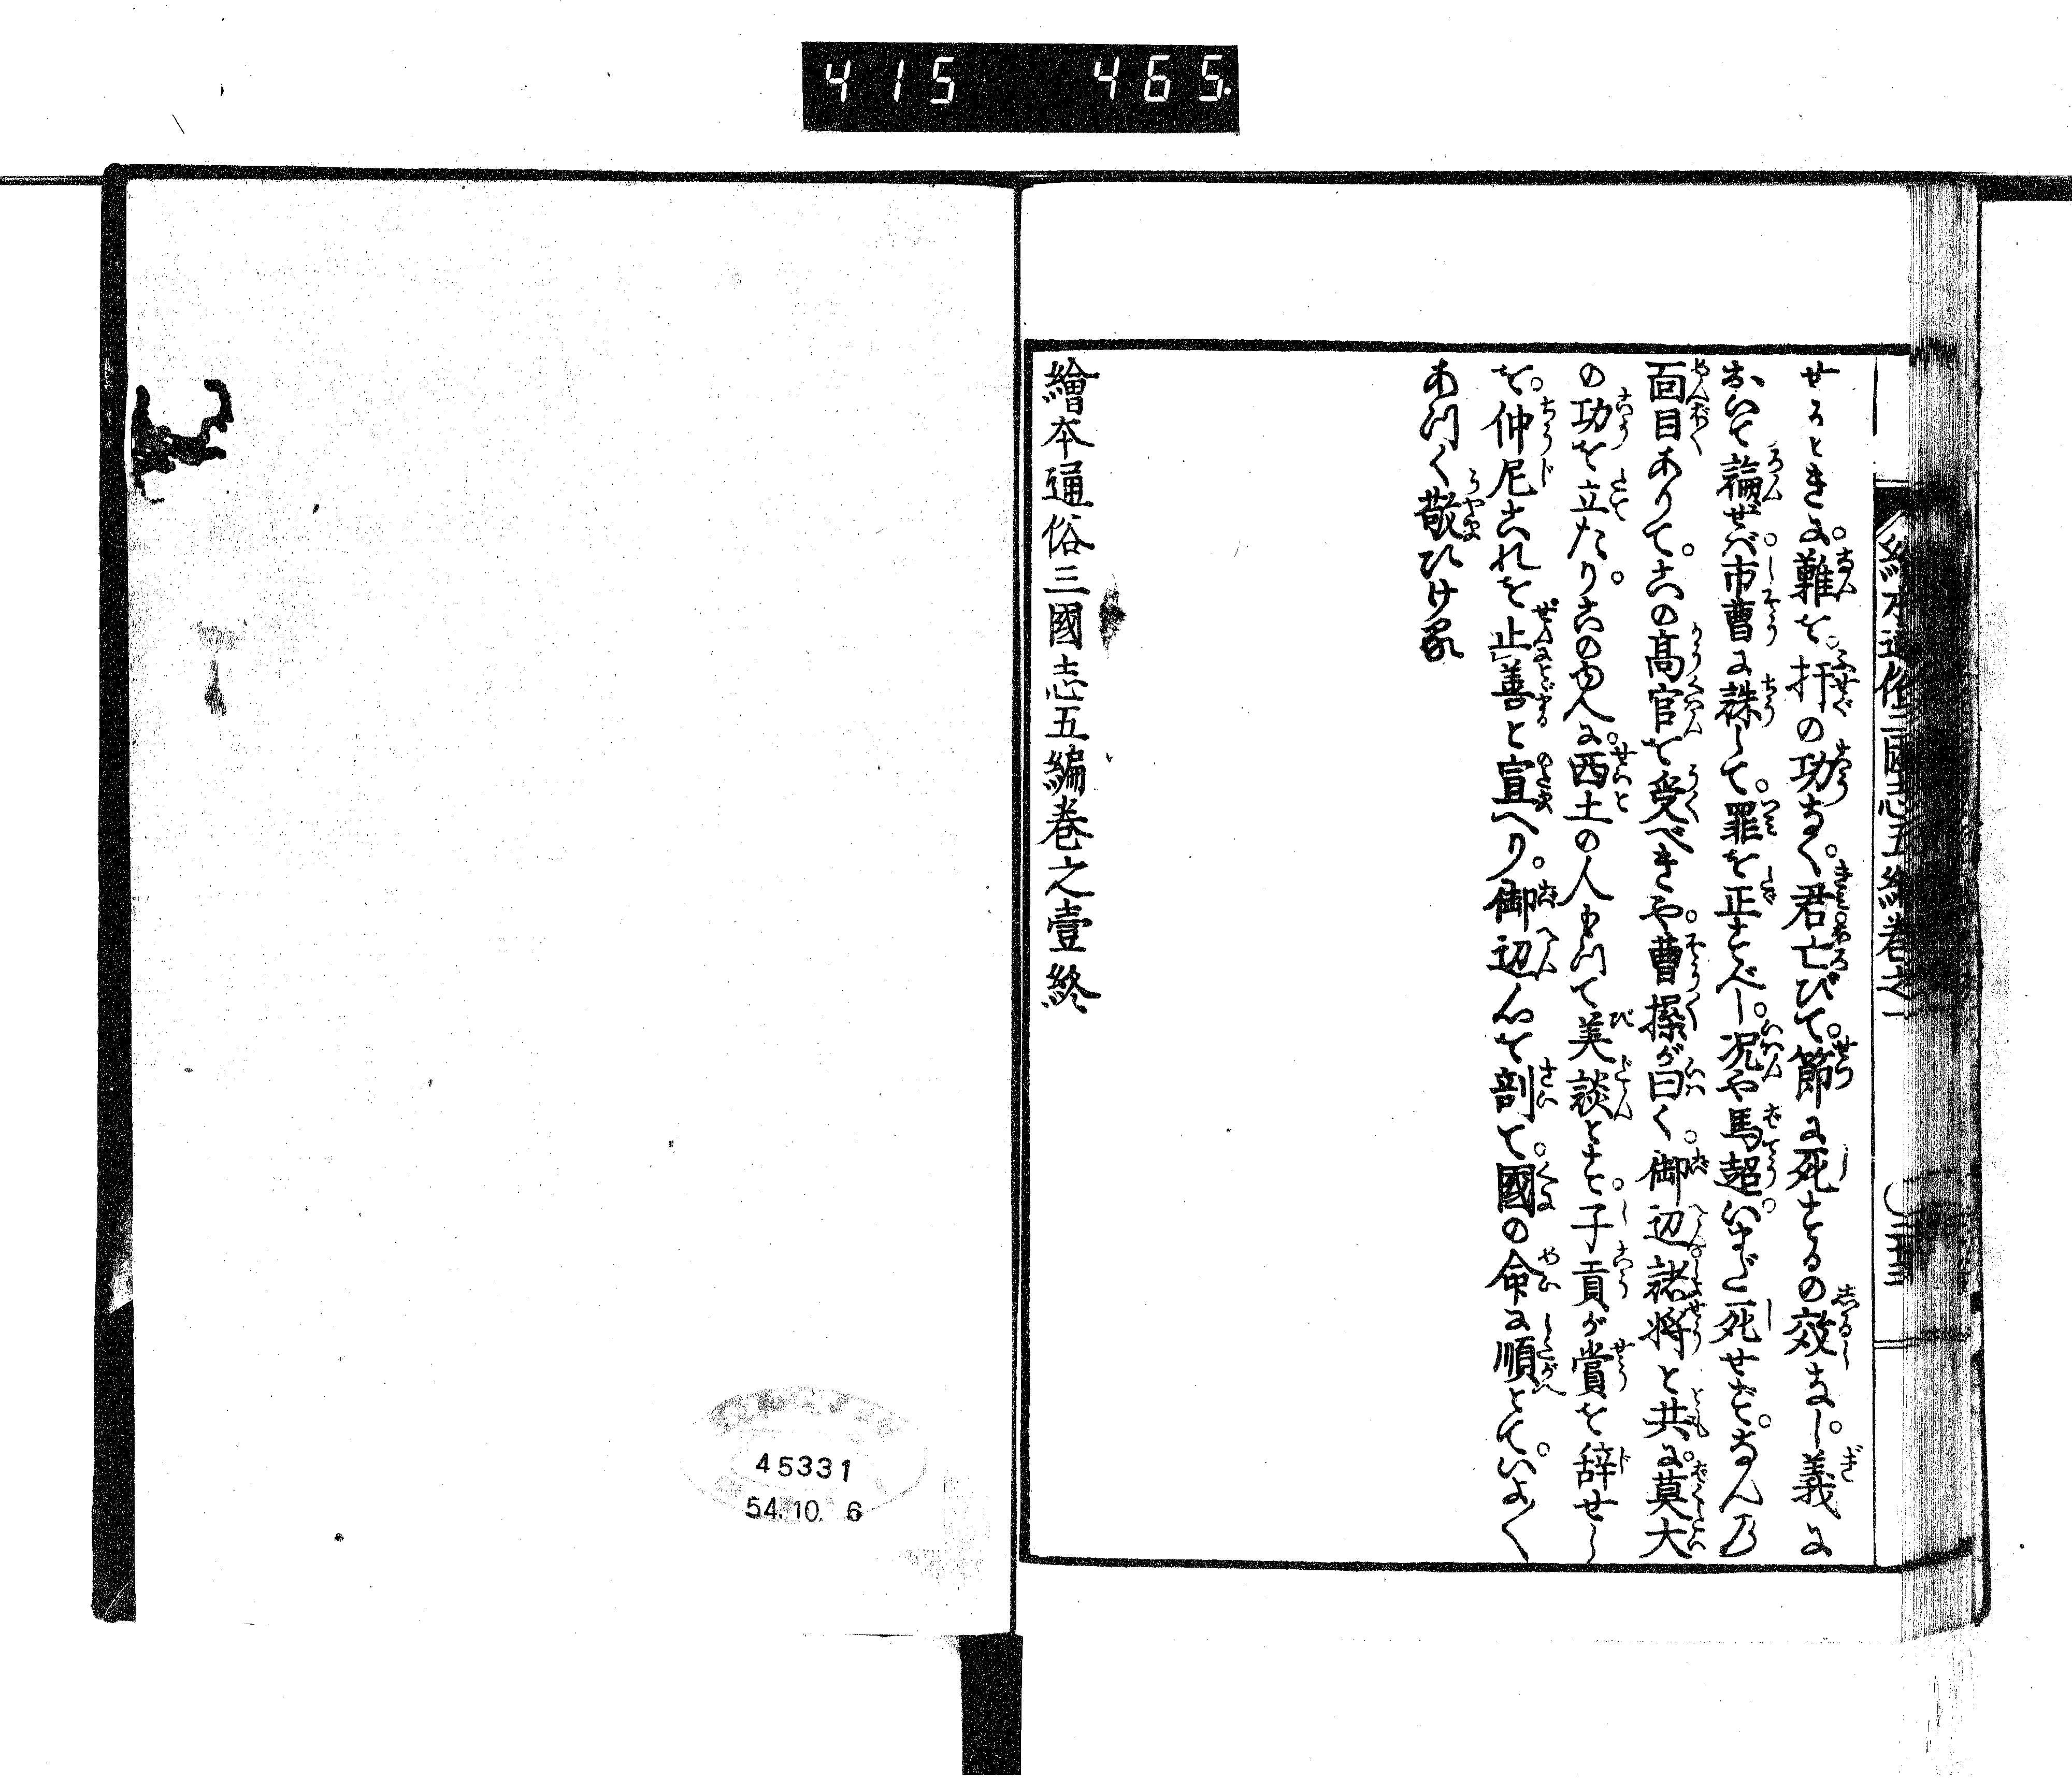 415 465.
繪本通俗三國志五編卷之一
せるときに。難を。扞の功なく。君亡びて。節に死するの效なし。義に
おいて論ぜば。市曹に誅して。罪を正すべし。况や馬超。いまだ死せず。なんの
面目ありて。この髙官を受べきや。曹操が曰く。御辺諸将と共に。莫大
の功を立たり。この由へに。西土の人もつて美談とす。子貢が賞を辞せし
を。仲尼これを止善と宣へり。御辺心を剖て。國の命に順とて。いよ〳〵
あつく敬ひける
繪本通俗三國志五編卷之壹終
45331
54.10.6